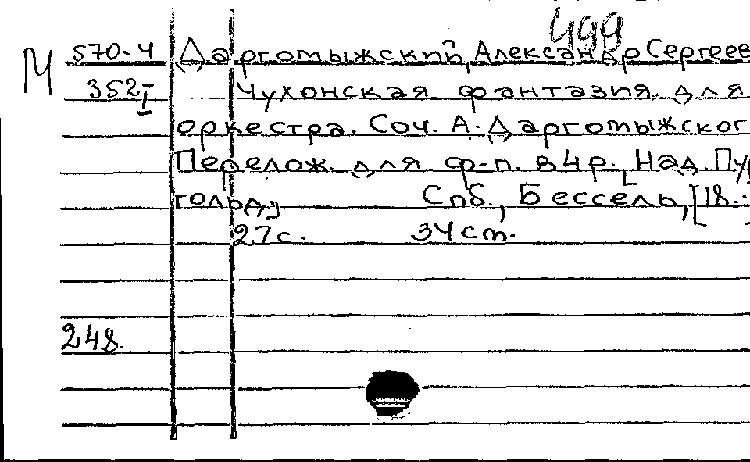 499
М 570-4 Даргомыжский, Александр Сергеев
352-I Чухонская фантазия для
оркестра. Соч. А. Даргомыжског
Перелож. для ф-п. в 4 р., Над. Пур
гольд.; Спб., Бессель, [18..
27 с. 34 ст.
248.